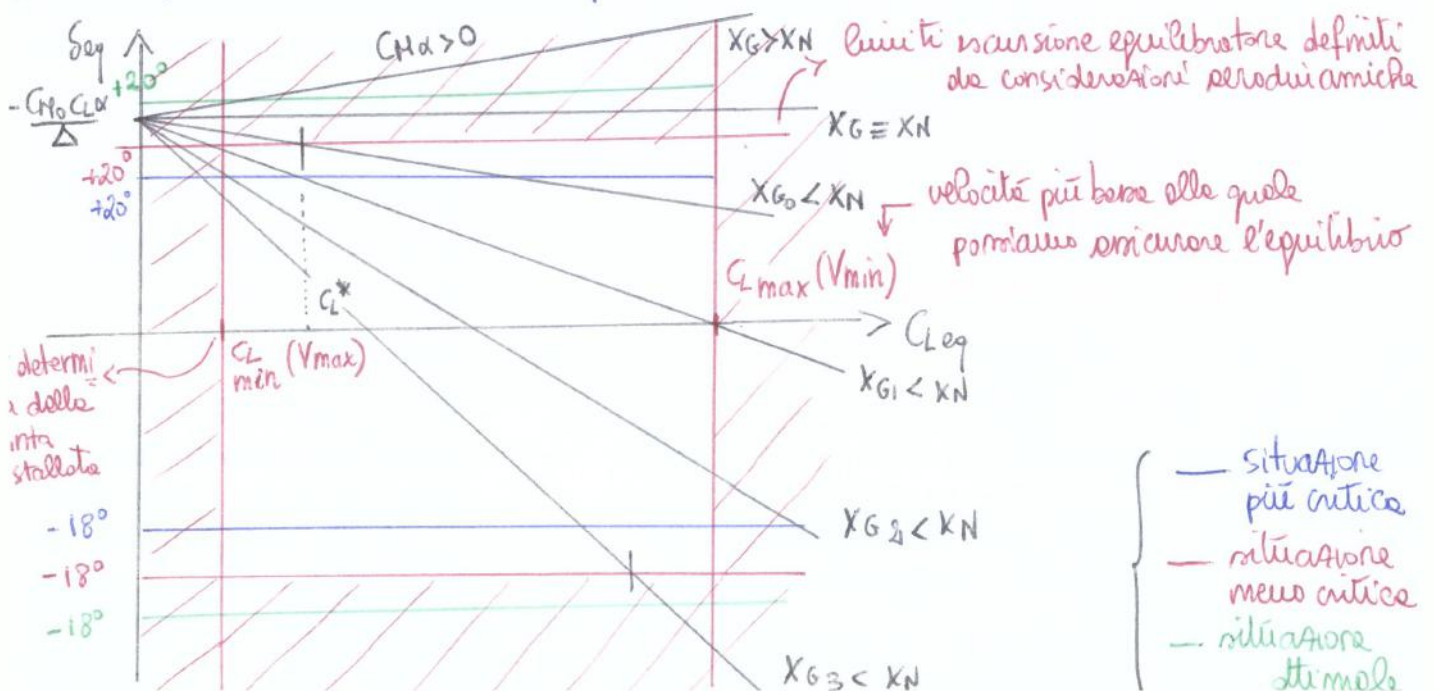 δeq
+20°
- CM₀ CLα
Δ
CMα>0
XG>XN
limiti escursione equilibratore definiti
da considerazioni aerodinamiche
XG ≡ XN
+20°
+20°
XG₀ < XN
velocità più bassa alla quale
possiamo assicurare l'equilibrio
CL*
CL max (Vmin)
CL eq
CL min (Vmax)
XG₁ < XN
determi
dalla
inta
stallata
-18°
-18°
-18°
XG₂ < XN
XG₃ < XN
— situazione
più critica
— situazione
meno critica
— situazione
ottimale